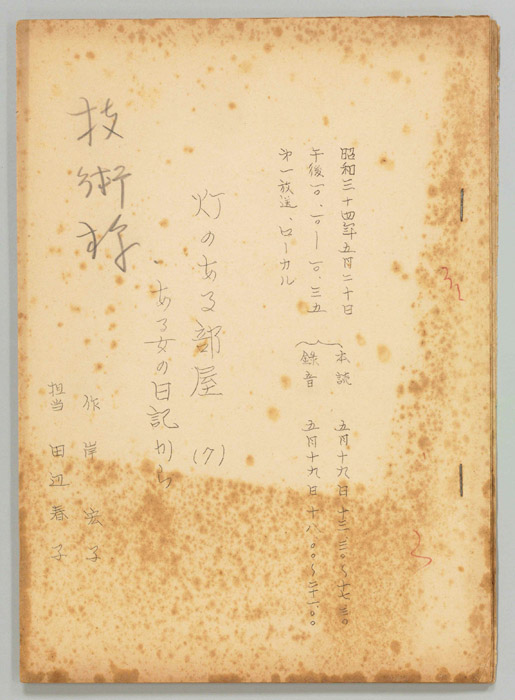 昭和三十四年五月二十日
午後一〇、一〇―一〇、三五
第一放送、ローカル
本読 五月十九日 十三、三〇〜十七、三〇
録音 五月十九日 十八、〇〇〜二十一、〇〇
灯のある部屋 (7)
ある女の日記から
作 岸 宏子
担当 田辺春子
技術様